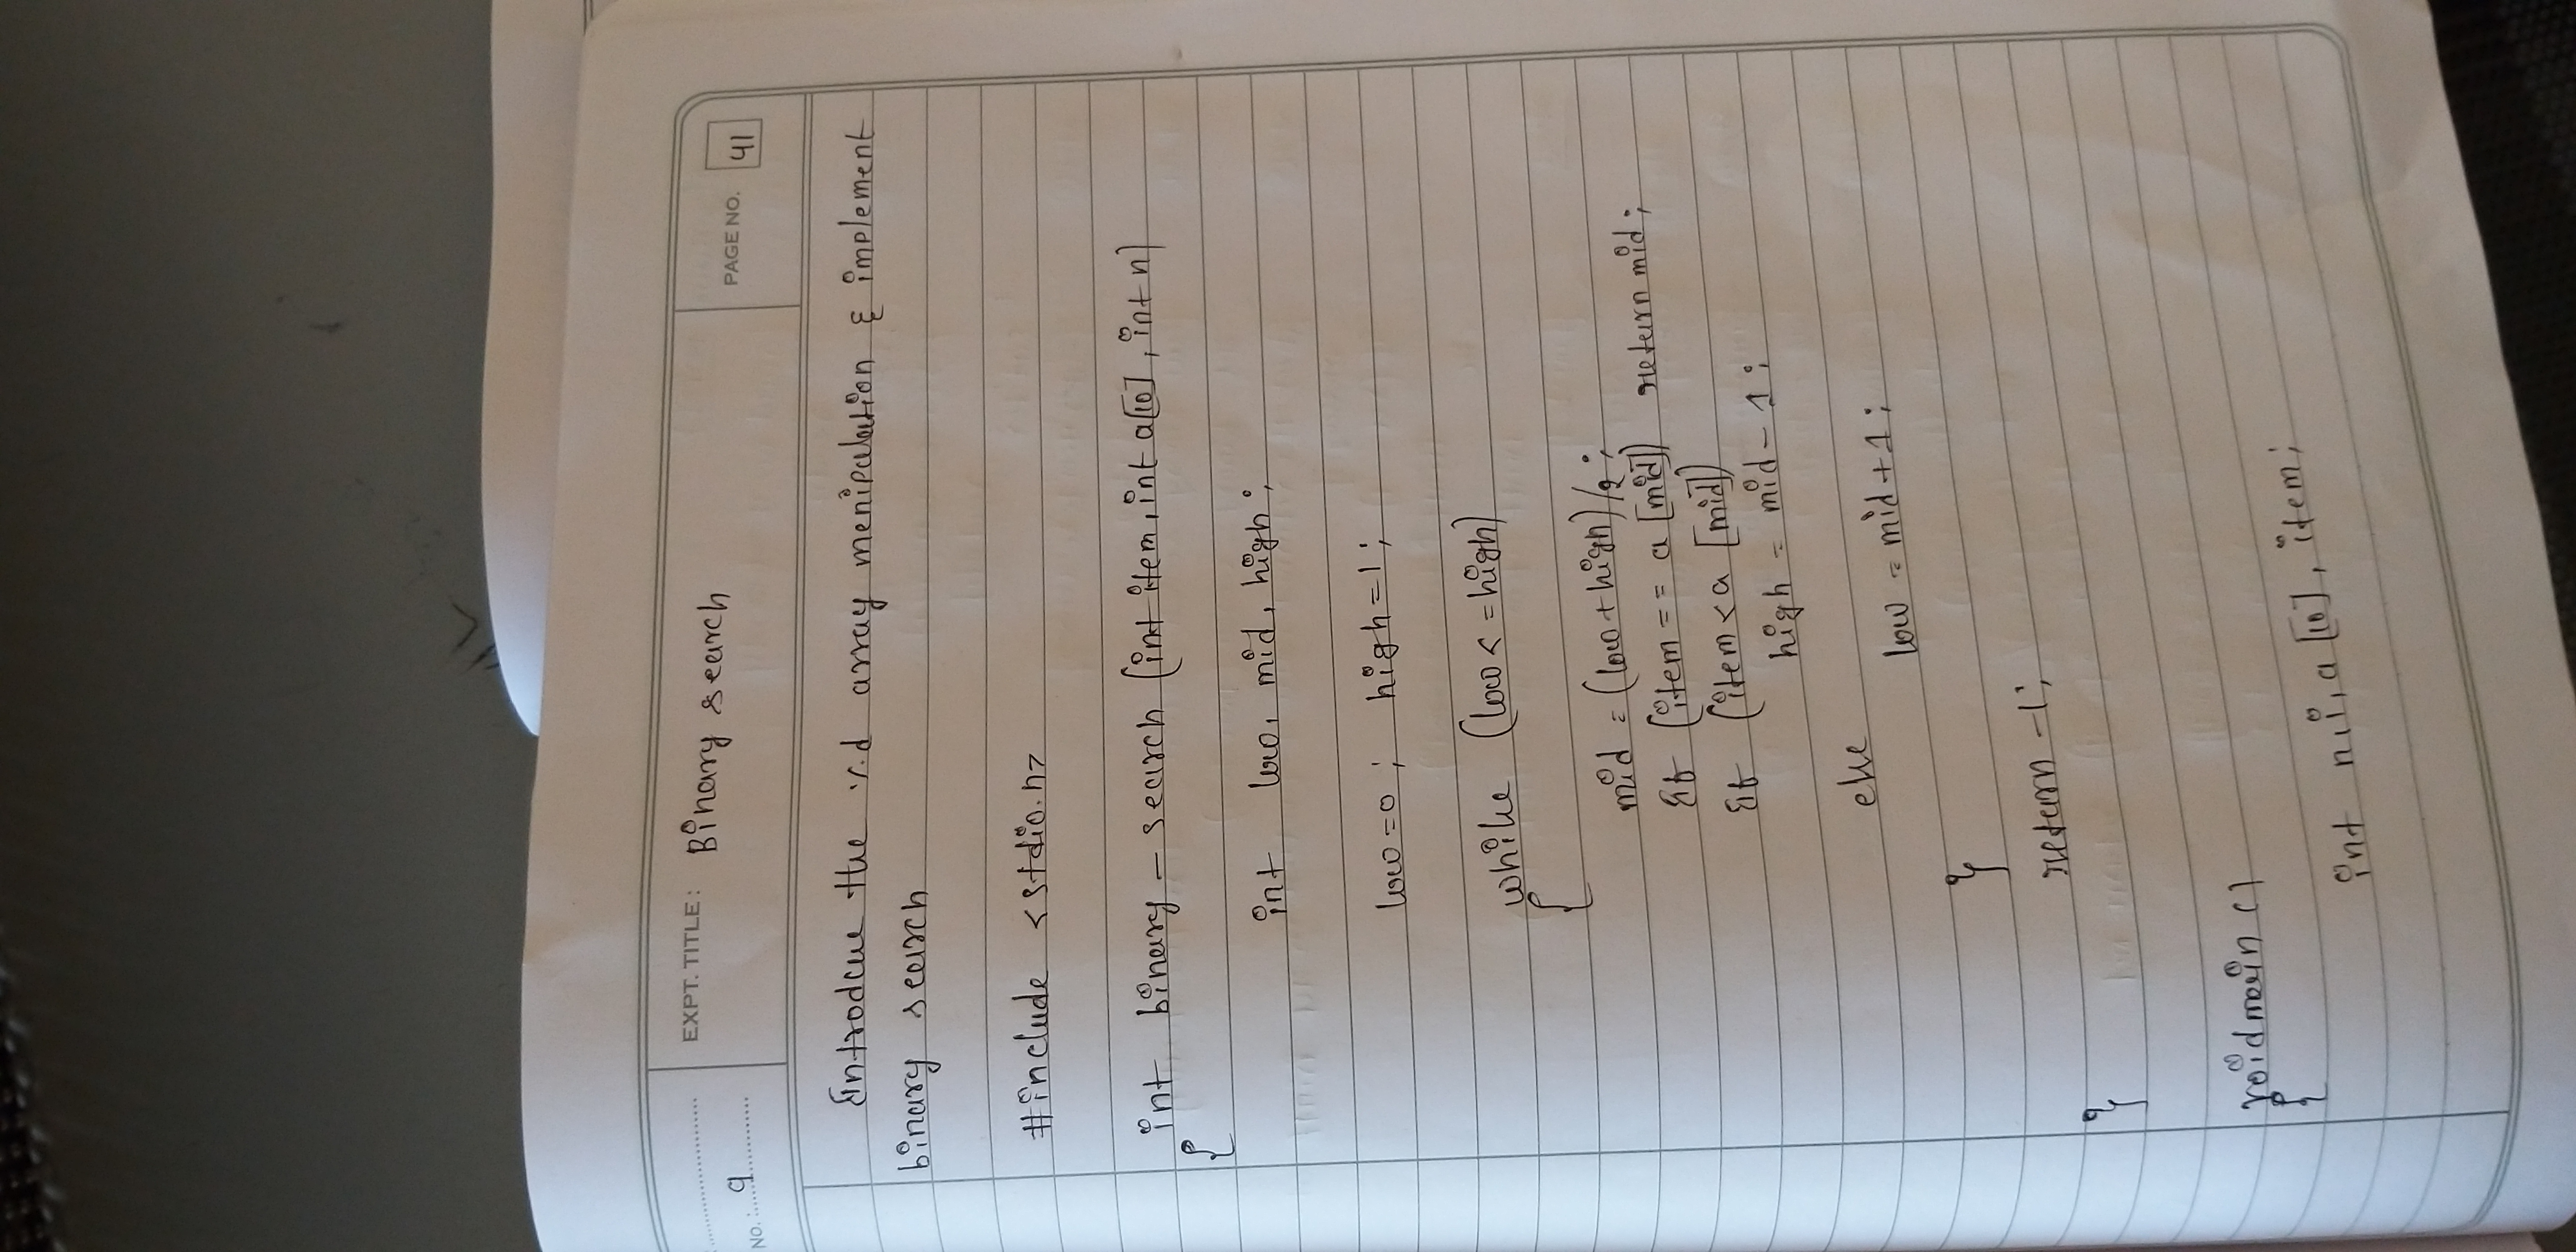 No.: 9
EXPT. TITLE: Binary search
PAGE NO. 41
Introdcue the 1.d array menipulation & implement
binary search
#include <stdio.h>
int binary - search (int item, int a[10], int n)
{
int low, mid, high;
low=0; high=1;
while (low<=high)
{
mid = (low+high)/2;
if (item == a [mid]) return mid;
if (item<a [mid])
high = mid-1;
else
low = mid+1;
}
return -1;
}
void main ()
{
int n, i, a [10], item;